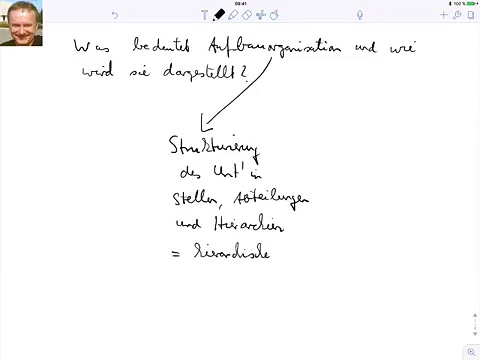 09:41
100 %
Was bedeutet Aufbauorganisation und wie
wird sie dargestellt?
Strukturierung
des Unt' in
Stellen, Abteilungen
und Hierarchien
= hierarchische